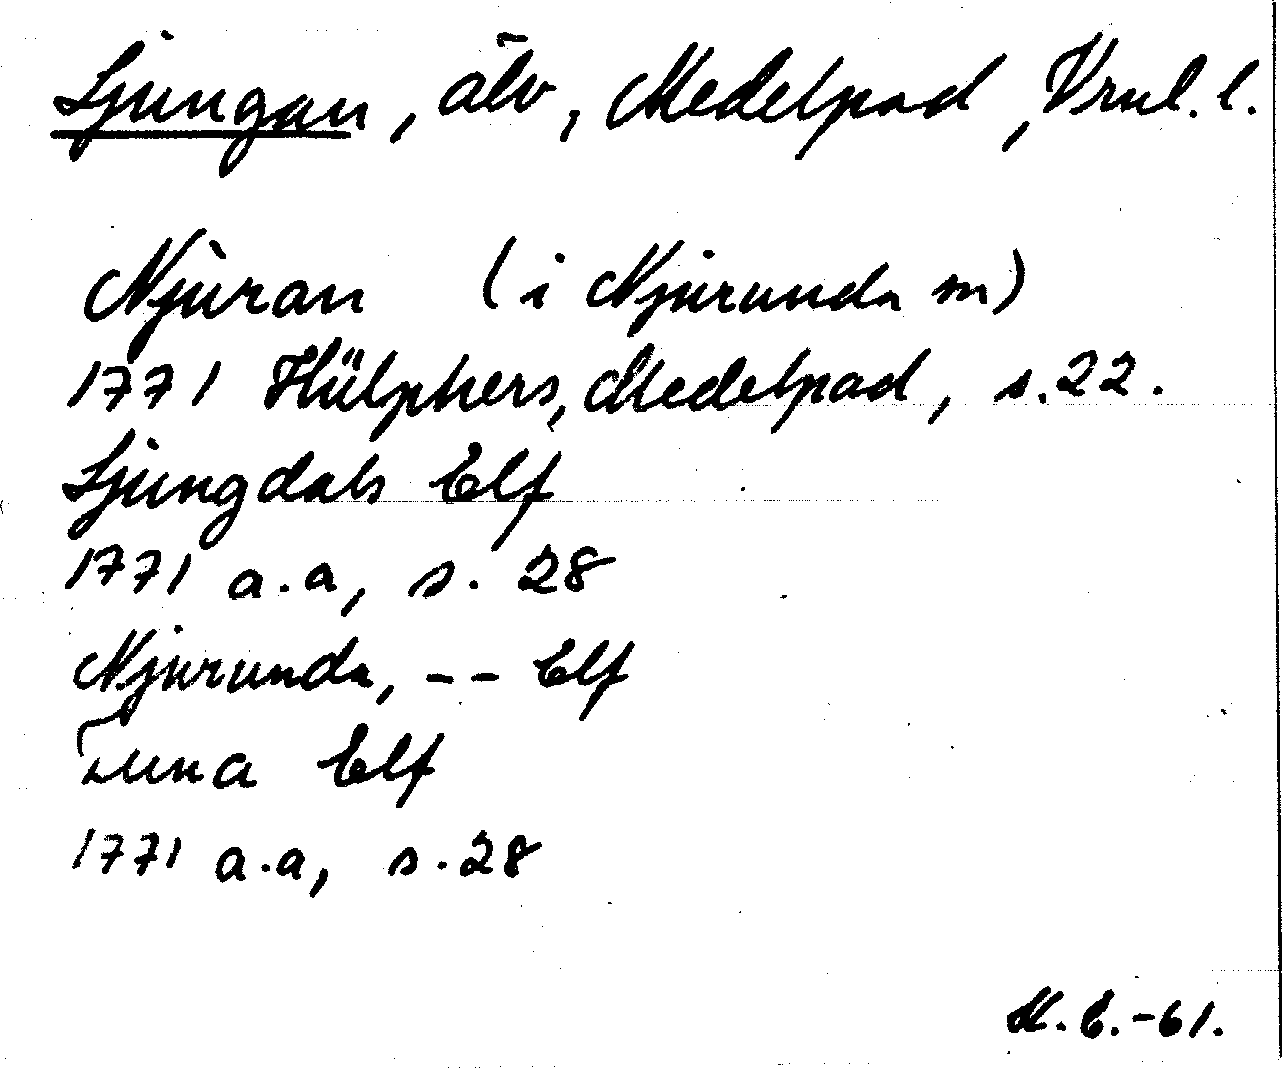 Ljungan, älv, Medelpad, Vrnl. l.
Njuran (i Njurunda sn)
1771 Hülphers, Medelpad, s. 22.
Ljungdals Elf
1771 a.a, s. 28
Njurunda, -- Elf
Tuna Elf
1771 a.a, s. 28
M.E.-61.